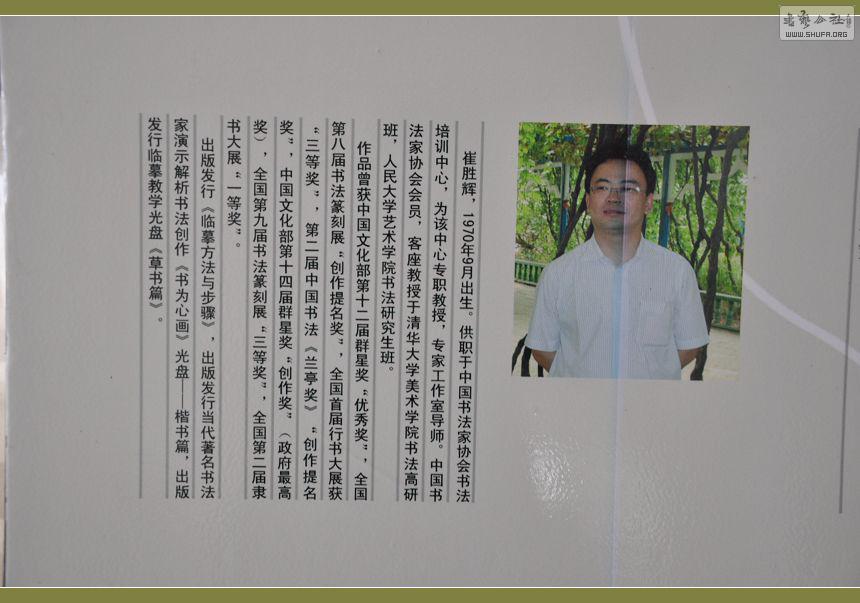 崔胜辉，1970年9月出生。供职于中国书法家协会书法
培训中心，为该中心专职教授，专家工作室导师。中国书
法家协会会员，客座教授于清华大学美术学院书法高研
班，人民大学艺术学院书法研究生班。
作品曾获中国文化部第十二届群星奖“优秀奖”，全国
第八届书法篆刻展“创作提名奖”，全国首届行书大展获
“三等奖”，第二届中国书法《兰亭奖》“创作提名
奖”，中国文化部第十四届群星奖“创作奖”（政府最高
奖），全国第九届书法篆刻展“三等奖”，全国第二届隶
书大展“一等奖”。
出版发行《临摹方法与步骤》，出版发行当代著名书法
家演示解析书法创作《书为心画》光盘——楷书篇，出版
发行临摹教学光盘《草书篇》。
WWW.SHUFA.ORG